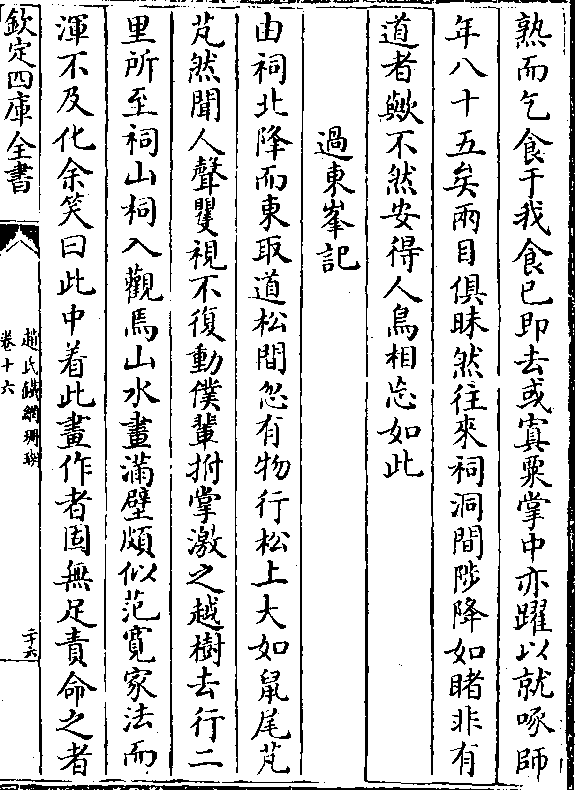 熟而乞食于我食已即去或寘粟掌中亦躍以就啄師
年八十五矣兩目俱昧然往來祠洞間陟降如睹非有
道者歟不然安得人鳥相忘如此
過東峯記
由祠北降而東取道松間忽有物行松上大如鼠尾芃
芃然聞人聲矍視不復動僕輩拊掌激之越樹去行二
里所至祠山祠入觀馬山水畫滿壁頗似范寛家法而
渾不及化余笑曰此中着此畫作者固無足責命之者
欽定四庫全書
趙氏鐵網珊瑚
卷十六
二十六